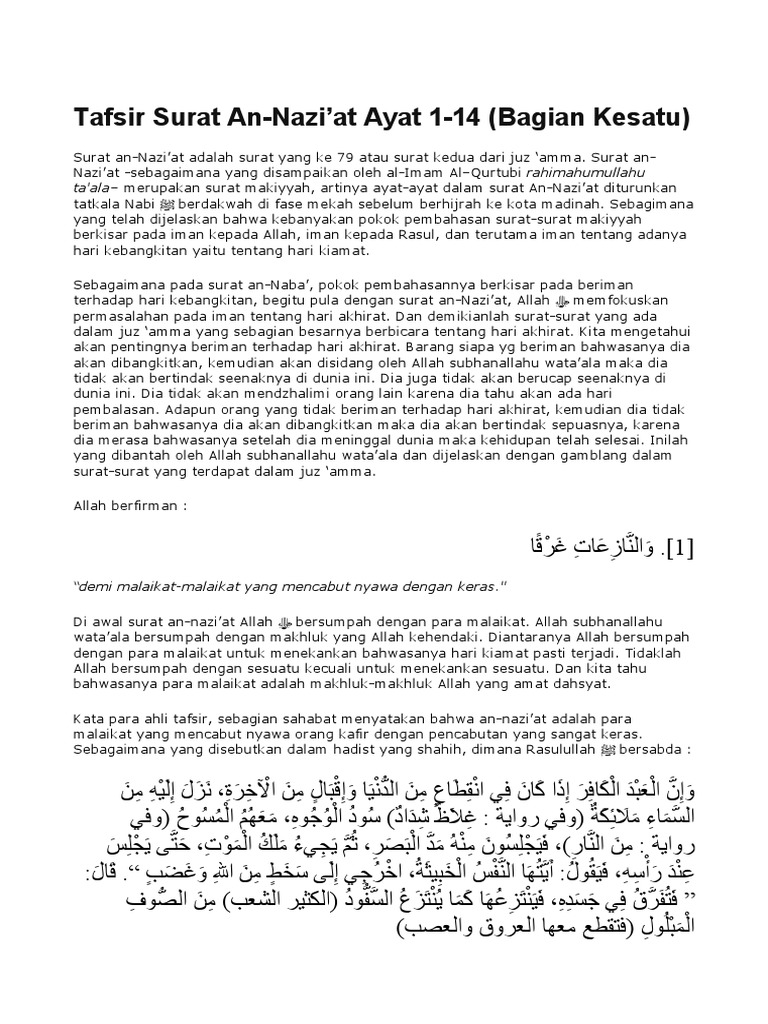 Tafsir Surat An-Nazi’at Ayat 1-14 (Bagian Kesatu)
Surat an–Nazi’at adalah surat yang ke 79 atau surat kedua dari juz ‘amma. Surat an–
Nazi’at –sebagaimana yang disampaikan oleh al–Imam Al–Qurtubi rahimahumullahu
ta'ala– merupakan surat makiyyah, artinya ayat–ayat dalam surat An–Nazi’at diturunkan
tatkala Nabi ﷺ berdakwah di fase mekah sebelum berhijrah ke kota madinah. Sebagimana
yang telah dijelaskan bahwa kebanyakan pokok pembahasan surat–surat makiyyah
berkisar pada iman kepada Allah, iman kepada Rasul, dan terutama iman tentang adanya
hari kebangkitan yaitu tentang hari kiamat.
Sebagaimana pada surat an–Naba’, pokok pembahasannya berkisar pada beriman
terhadap hari kebangkitan, begitu pula dengan surat an–Nazi’at, Allah ﷻ memfokuskan
permasalahan pada iman tentang hari akhirat. Dan demikianlah surat–surat yang ada
dalam juz ‘amma yang sebagian besarnya berbicara tentang hari akhirat. Kita mengetahui
akan pentingnya beriman terhadap hari akhirat. Barang siapa yg beriman bahwasanya dia
akan dibangkitkan, kemudian akan disidang oleh Allah subhanallahu wata’ala maka dia
tidak akan bertindak seenaknya di dunia ini. Dia juga tidak akan berucap seenaknya di
dunia ini. Dia tidak akan mendzhalimi orang lain karena dia tahu akan ada hari
pembalasan. Adapun orang yang tidak beriman terhadap hari akhirat, kemudian dia tidak
beriman bahwasanya dia akan dibangkitkan maka dia akan bertindak sepuasnya, karena
dia merasa bahwasanya setelah dia meninggal dunia maka kehidupan telah selesai. Inilah
yang dibantah oleh Allah subhanallahu wata’ala dan dijelaskan dengan gamblang dalam
surat–surat yang terdapat dalam juz ‘amma.
Allah berfirman :
[1]. وَالنَّازِعَاتِ غَرْقًا
“demi malaikat-malaikat yang mencabut nyawa dengan keras."
Di awal surat an–nazi’at Allah ﷻ bersumpah dengan para malaikat. Allah subhanallahu
wata’ala bersumpah dengan makhluk yang Allah kehendaki. Diantaranya Allah bersumpah
dengan para malaikat untuk menekankan bahwasanya hari kiamat pasti terjadi. Tidaklah
Allah bersumpah dengan sesuatu kecuali untuk menekankan sesuatu. Dan kita tahu
bahwasanya para malaikat adalah makhluk–makhluk Allah yang amat dahsyat.
Kata para ahli tafsir, sebagian sahabat menyatakan bahwa an–nazi’at adalah para
malaikat yang mencabut nyawa orang kafir dengan pencabutan yang sangat keras.
Sebagaimana yang disebutkan dalam hadist yang shahih, dimana Rasulullah ﷺ bersabda :
وَإِنَّ الْعَبْدَ الْكَافِرَ إِذَا كَانَ فِي انْقِطَاعٍ مِنَ الدُّنْيَا وَإِقْبَالٍ مِنَ الْآخِرَةِ، نَزَلَ إِلَيْهِ مِنَ
السَّمَاءِ مَلَائِكَةٌ (وفي رواية : غِلَاظٌ شِدَادٌ) سُودُ الْوُجُوهِ، مَعَهُمُ الْمُسُوحُ (وفي
رواية : مِنَ النَّارِ)، فَيَجْلِسُونَ مِنْهُ مَدَّ الْبَصَرِ، ثُمَّ يَجِيءُ مَلَكُ الْمَوْتِ، حَتَّى يَجْلِسَ
عِنْدَ رَأْسِهِ، فَيَقُولُ: أَيَّتُهَا النَّفْسُ الْخَبِيثَةُ، اخْرُجِي إِلَى سَخَطٍ مِنَ اللهِ وَغَضَبٍ “. قَالَ:
” فَتُفَرَّقُ فِي جَسَدِهِ، فَيَنْتَزِعُهَا كَمَا يُنْتَزَعُ السَّفُّودُ (الكثير الشعب) مِنَ الصُّوفِ
الْمَبْلُولِ (فتقطع معها العروق والعصب)